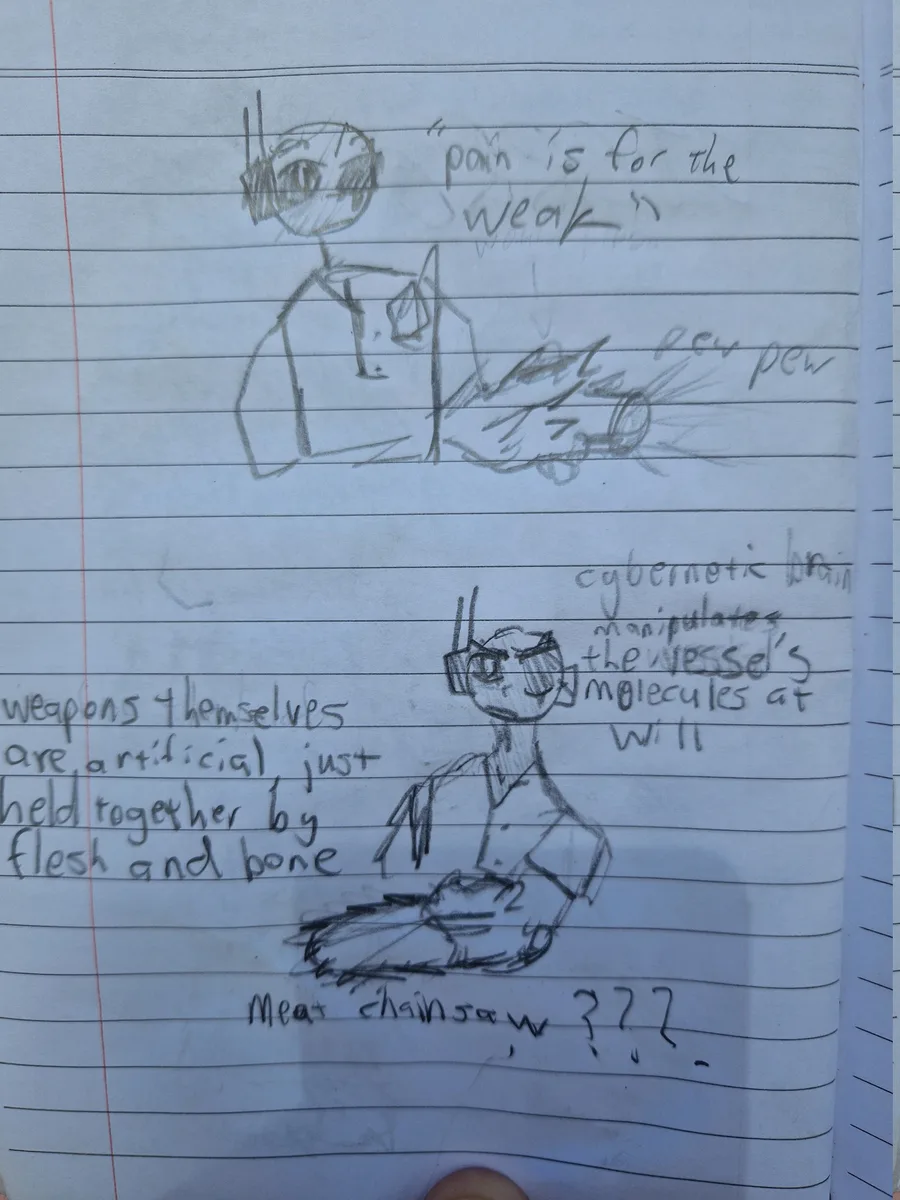 "pain is for the
weak"
pew pew
cybernetic brain
manipulates
the vessel's
molecules at
will
weapons themselves
are artificial, just
held together by
flesh and bone
meat chainsaw ???